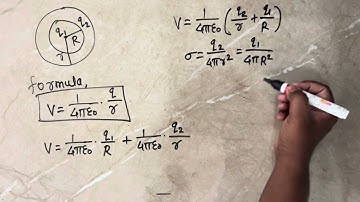 q₁ q₂
r R
formula,
V = 1/4πε₀ · q/r
V = 1/4πε₀ · q₁/R + 1/4πε₀ · q₂/r
V = 1/4πε₀ (q₂/r + q₁/R)
σ = q₂/4πr² = q₁/4πR²